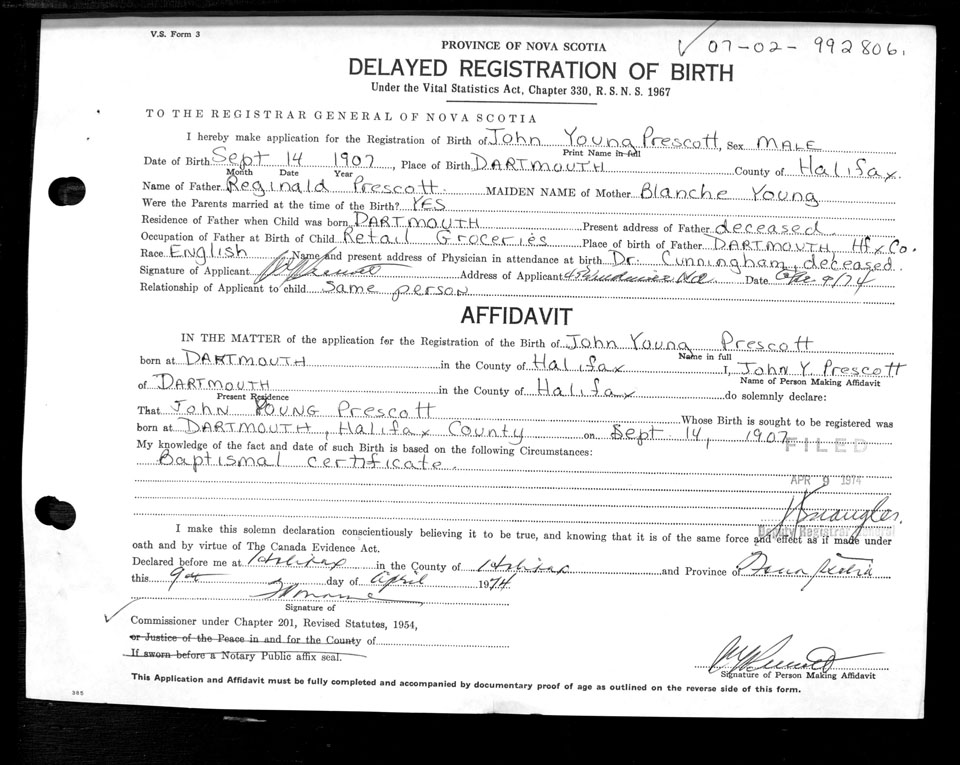 V.S. Form 3
07-02-992806.
PROVINCE OF NOVA SCOTIA
DELAYED REGISTRATION OF BIRTH
Under the Vital Statistics Act, Chapter 330, R.S.N.S. 1967
TO THE REGISTRAR GENERAL OF NOVA SCOTIA
I hereby make application for the Registration of Birth of John Young Prescott, Sex MALE
Print Name in full
Date of Birth Sept 14 1907, Place of Birth DARTMOUTH County of Halifax.
Month Date Year
Name of Father Reginald Prescott MAIDEN NAME of Mother Blanche Young
Were the Parents married at the time of the Birth? YES
Residence of Father when Child was born DARTMOUTH Present address of Father deceased
Occupation of Father at Birth of Child Retail Groceries Place of birth of Father DARTMOUTH, Hfx Co.
Race English Name and present address of Physician in attendance at birth Dr. Cunningham, deceased.
Signature of Applicant Address of Applicant Date 9/74
Relationship of Applicant to child same person
AFFIDAVIT
IN THE MATTER of the application for the Registration of the Birth of John Young Prescott
Name in full
born at DARTMOUTH in the County of Halifax I, John Y. Prescott
Name of Person Making Affidavit
of DARTMOUTH in the County of Halifax do solemnly declare:
Present Residence
That JOHN YOUNG Prescott Whose Birth is sought to be registered was
born at DARTMOUTH, Halifax County on Sept 14, 1907
My knowledge of the fact and date of such Birth is based on the following Circumstances:
FILED
Baptismal certificate.
APR 9 1974
Deputy Registrar General
I make this solemn declaration conscientiously believing it to be true, and knowing that it is of the same force and effect as if made under
oath and by virtue of The Canada Evidence Act.
Declared before me at Halifax in the County of Halifax and Province of Nova Scotia
this 9th day of April 1974
Signature of
Commissioner under Chapter 201, Revised Statutes, 1954,
or Justice of the Peace in and for the County of
If sworn before a Notary Public affix seal.
Signature of Person Making Affidavit
This Application and Affidavit must be fully completed and accompanied by documentary proof of age as outlined on the reverse side of this form.
365